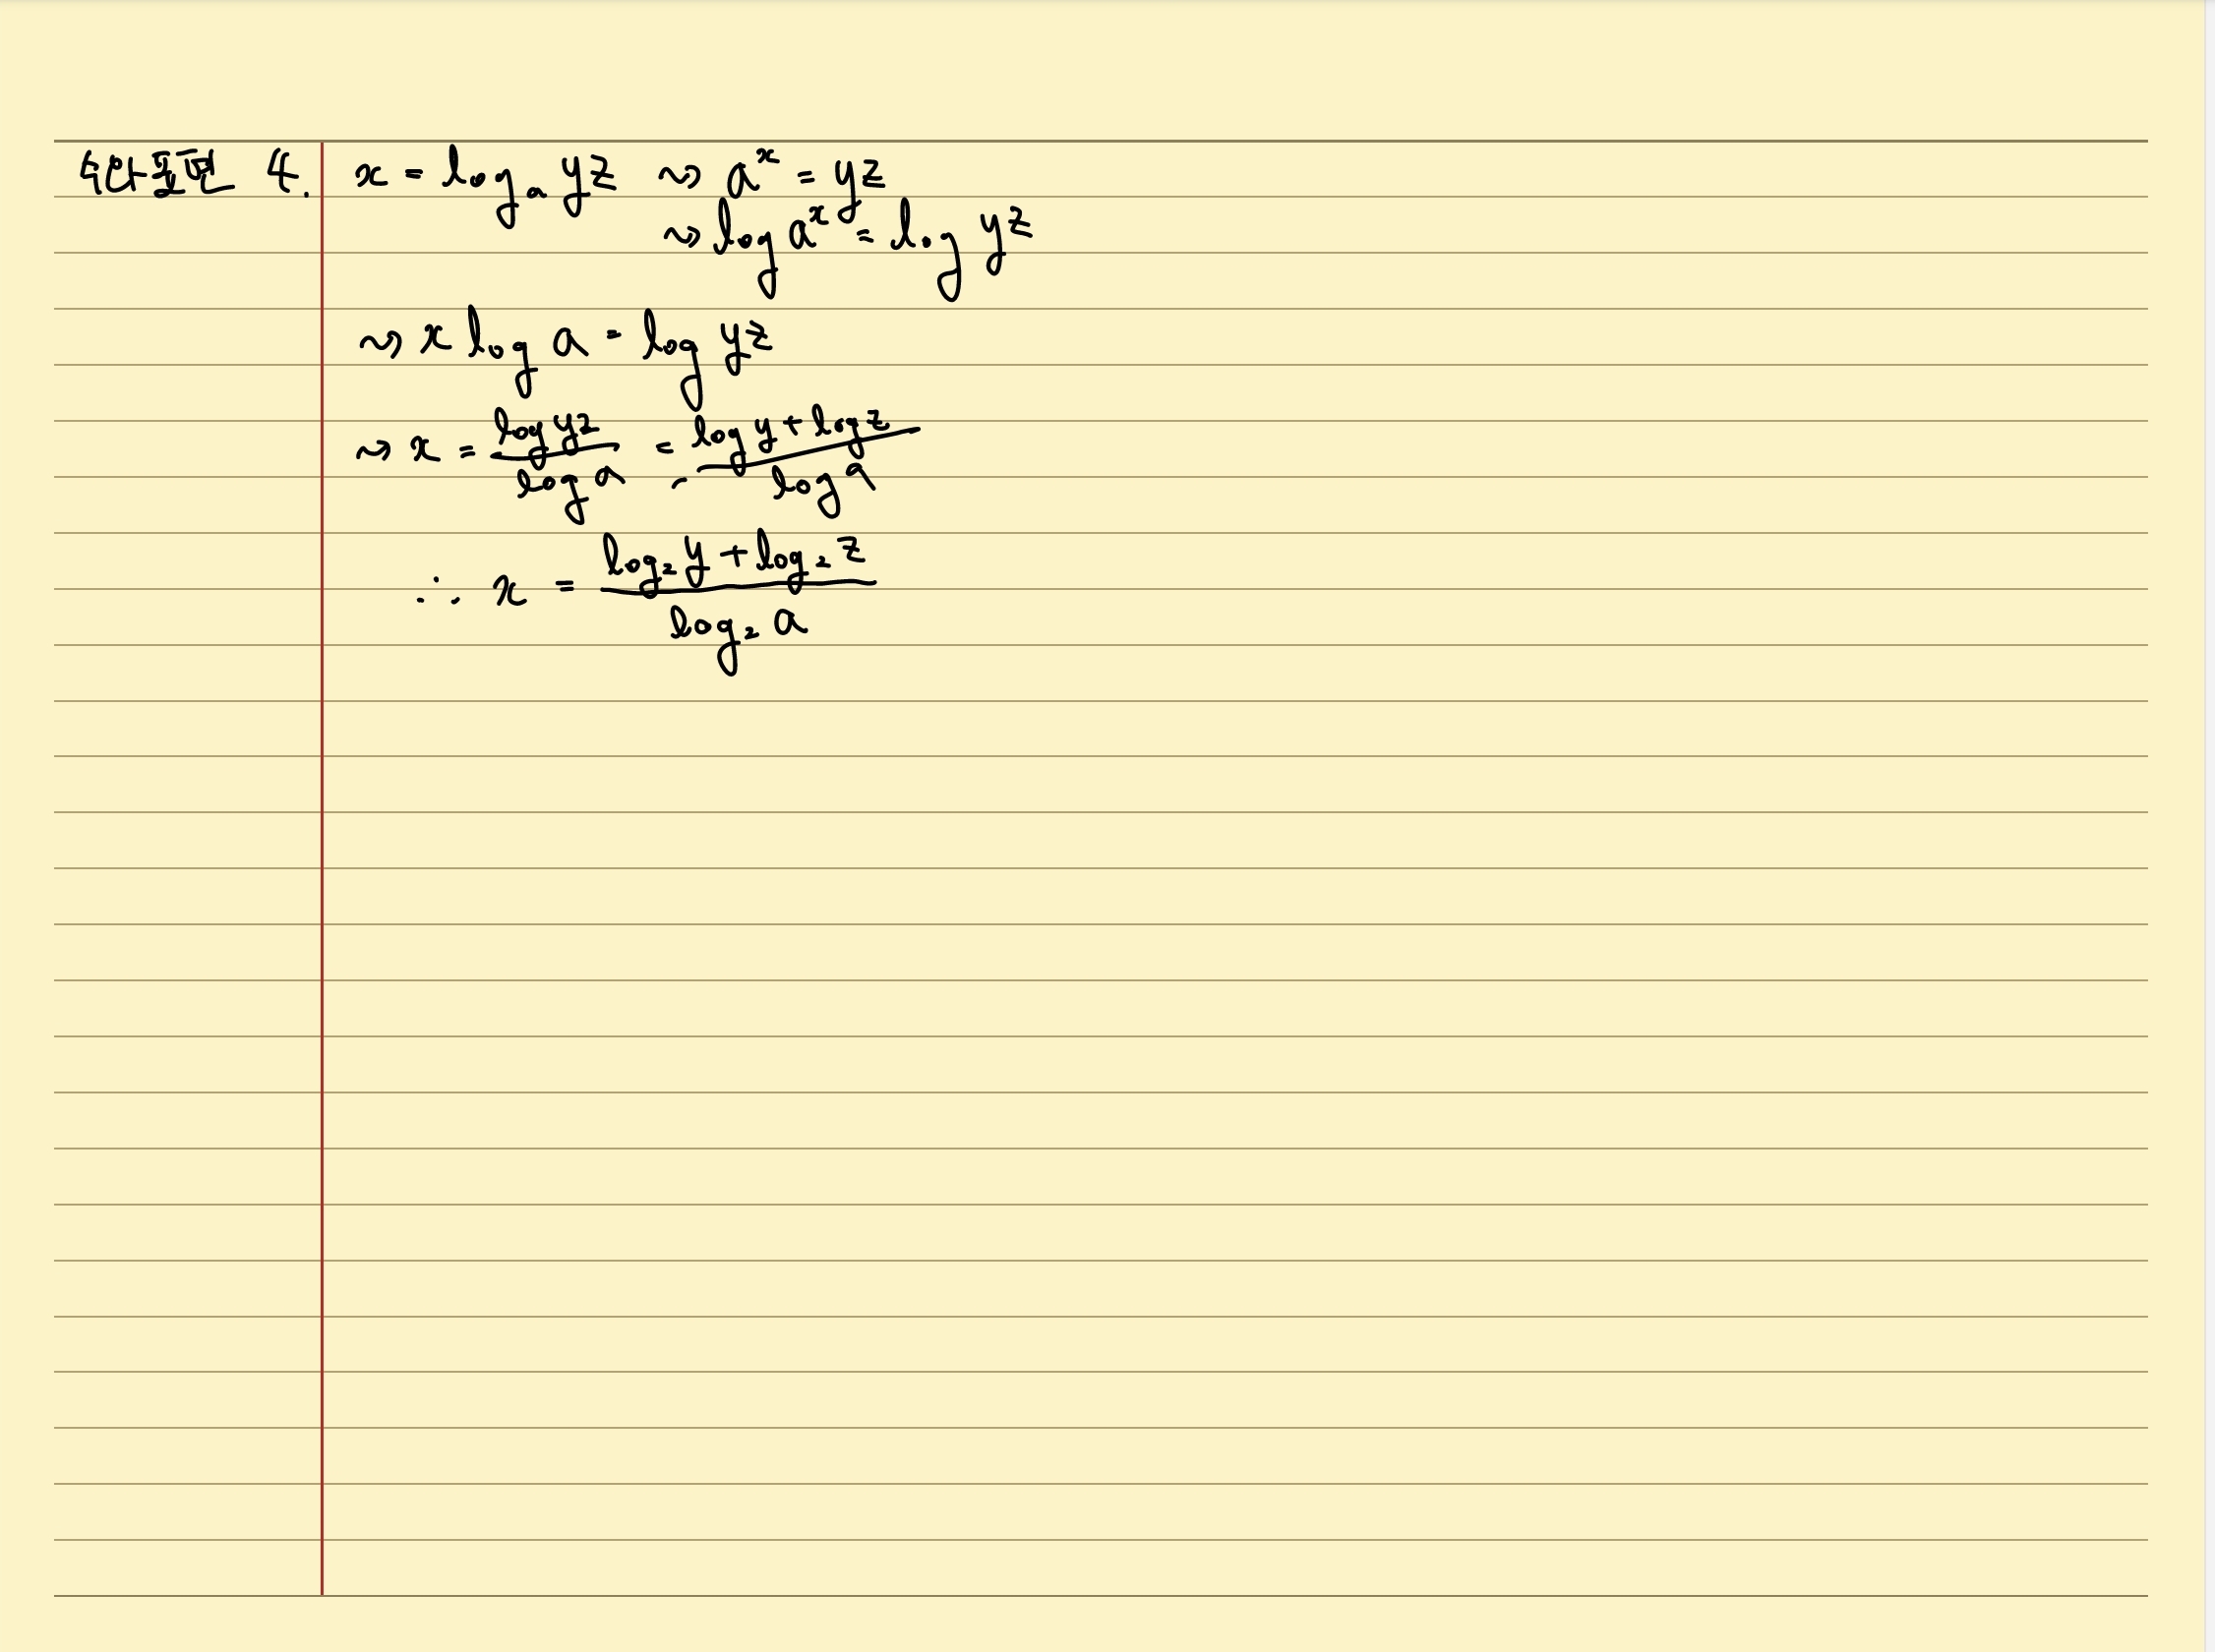 4. x = log_a yz ⇝ a^x = yz
⇝ log a^x = log yz
⇝ x log a = log yz
⇝ x = (log yz)/(log a) = (log y + log z)/(log a)
∴ x = (log₂ y + log₂ z)/(log₂ a)